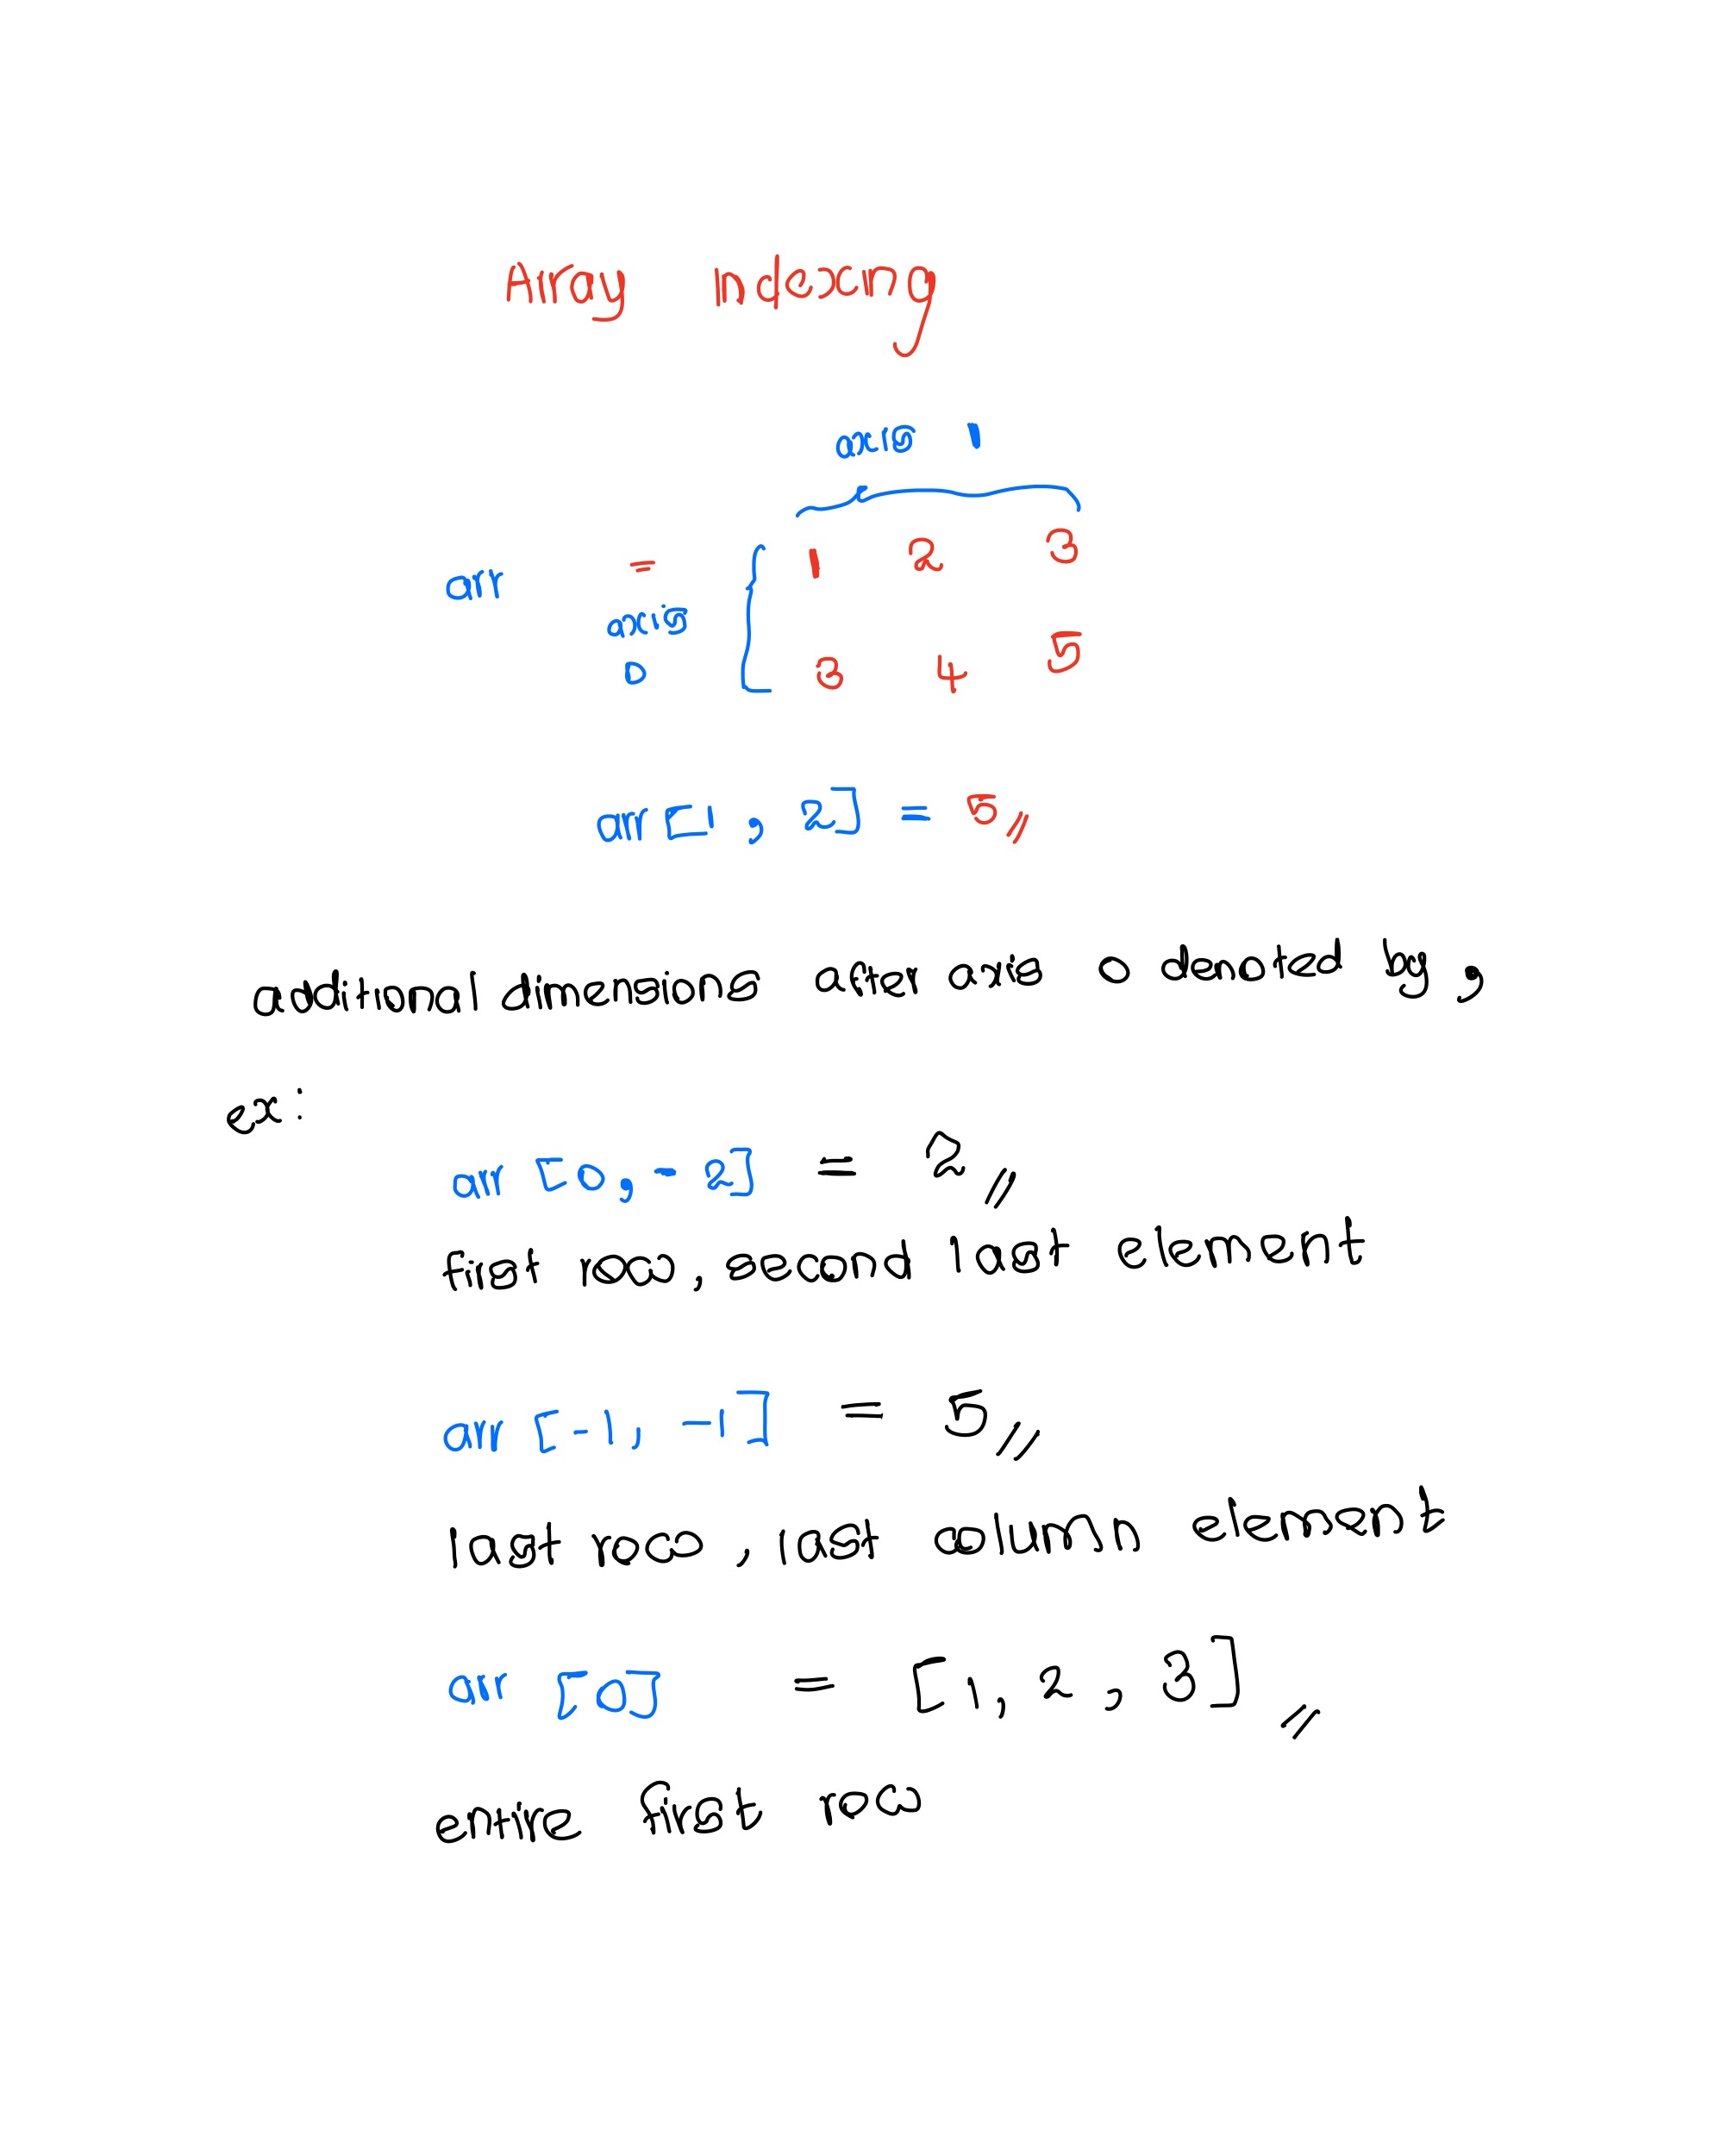 Array Indexing
axis 1
arr = 1 2 3
axis
0 3 4 5
arr[1, 2] = 5
additional dimensions after axis 0 denoted by ,
ex:
arr [0, -2] = 2
first row, second last element
arr [-1, -1] = 5
last row, last column element
arr [0] = [1, 2, 3]
entire first row